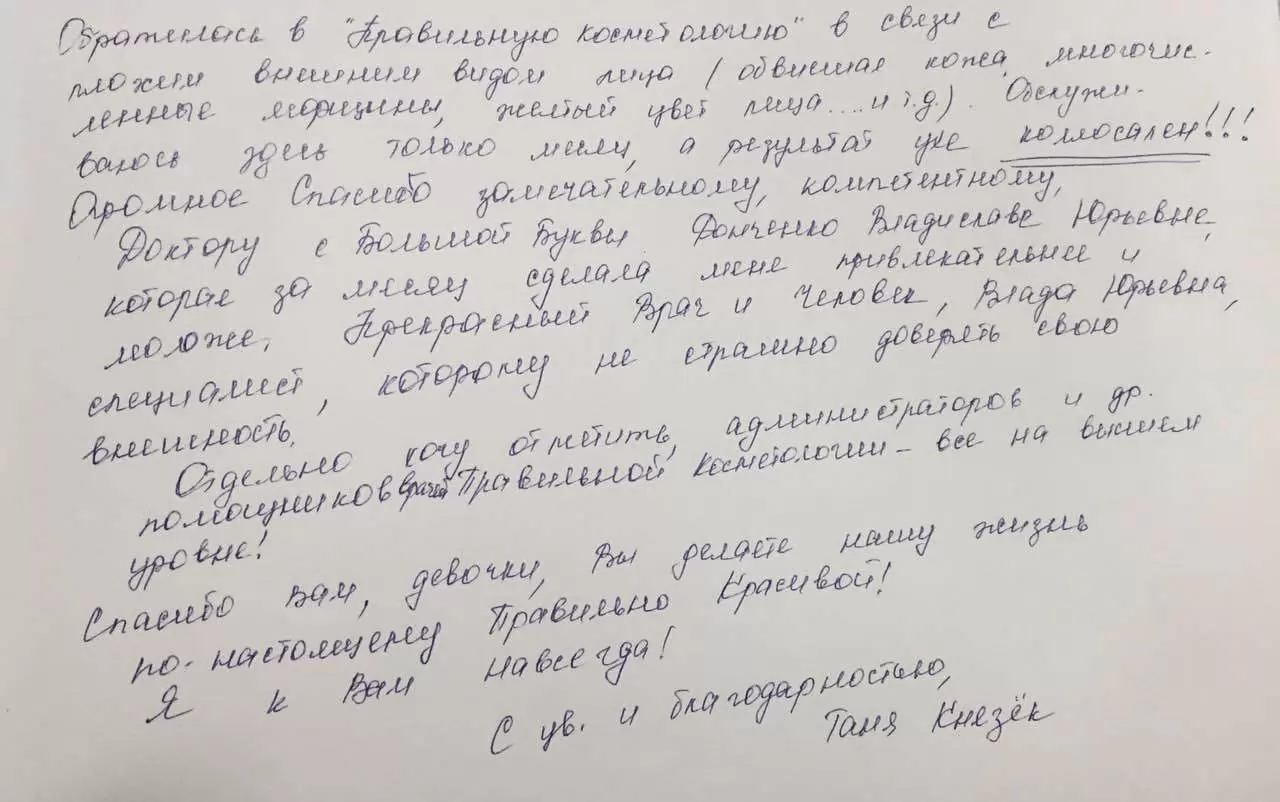 Обратилась в "Правильную косметологию" в связи с
плохим внешним видом лица (обвисшая кожа, многочис-
ленные морщины, желтый цвет лица.... и т.д.). Обслужи-
ваюсь здесь только месяц, а результат уже колоссален!!!
Огромное Спасибо замечательному, компетентному,
Доктору с Большой Буквы Донченко Владиславе Юрьевне,
которая за месяц сделала меня привлекательнее и
моложе. Прекрасный Врач и Человек, Влада Юрьевна,
специалист, которому не страшно доверять свою
внешность.
Отдельно хочу отметить, администраторов и др.
помощников врачей Правильной Косметологии - все на высшем
уровне!
Спасибо Вам, девочки, Вы делаете нашу жизнь
по-настоящему Правильно Красивой!
Я к Вам навсегда!
С ув. и благодарностью,
Таня Князёк